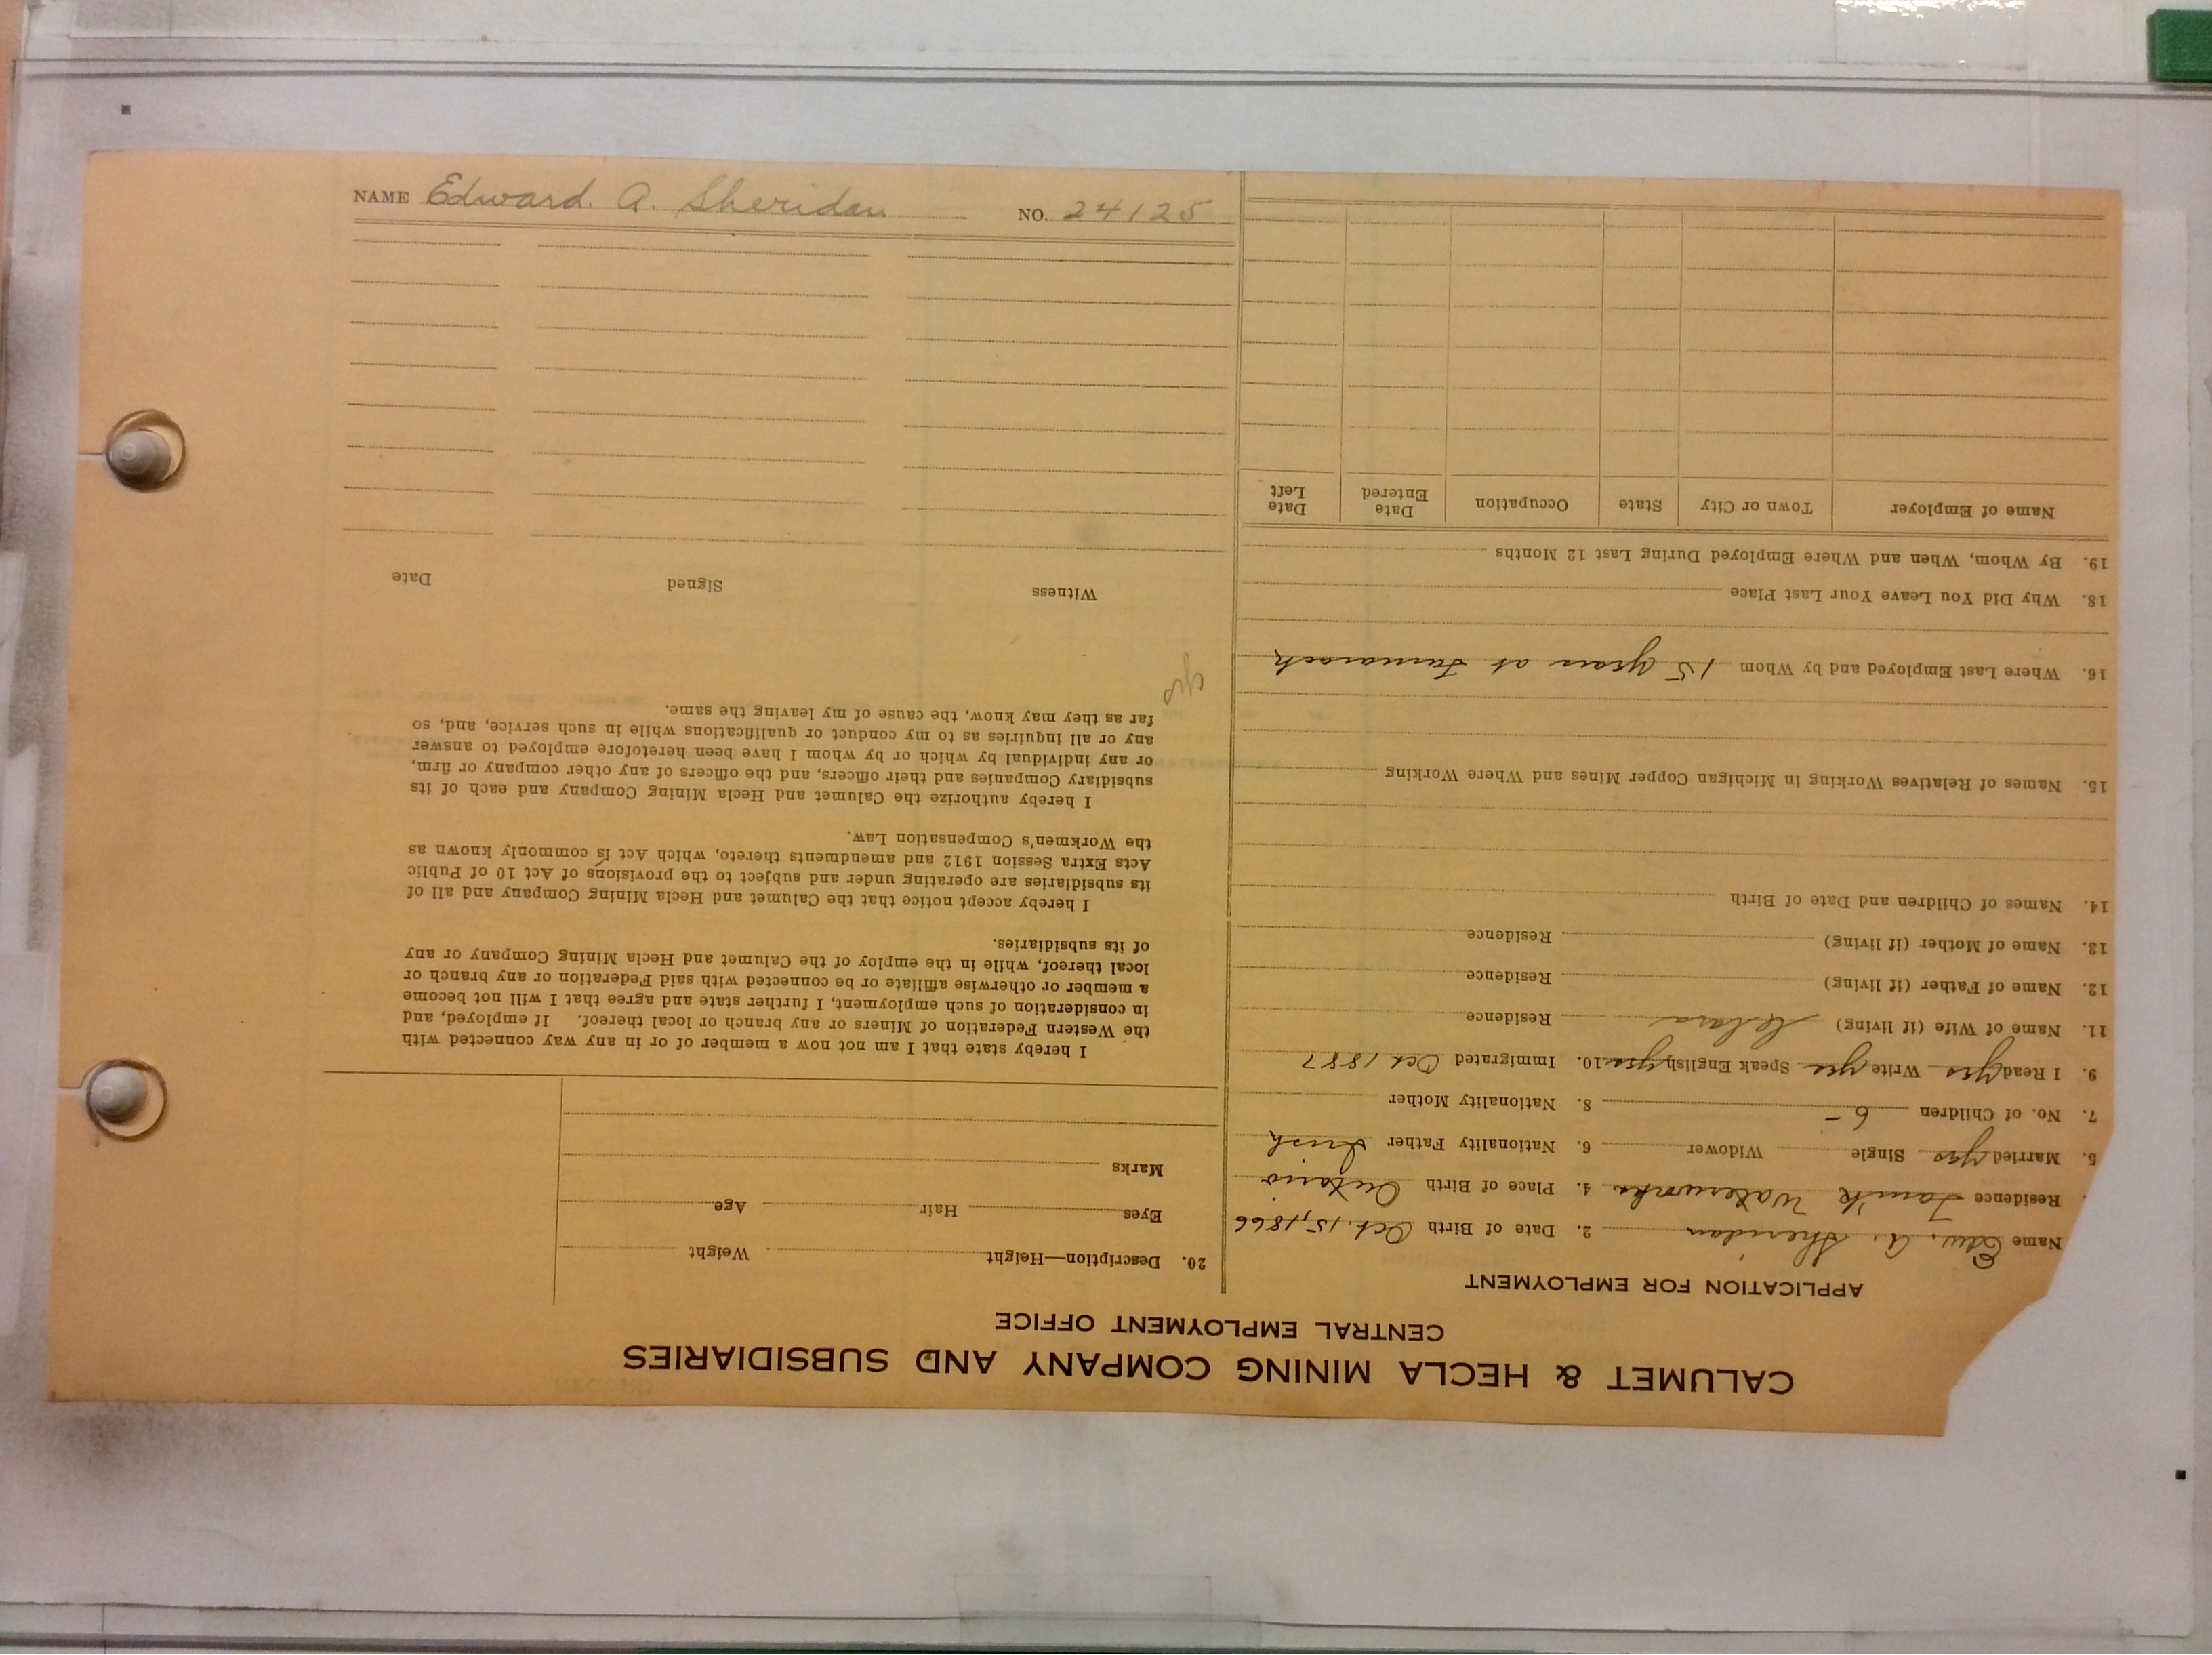 NAME Edward. A. Sheridan NO. 24125
CALUMET & HECLA MINING COMPANY AND SUBSIDIARIES
CENTRAL EMPLOYMENT OFFICE
APPLICATION FOR EMPLOYMENT
Name Edw. A. Sheridan 2. Date of Birth Oct. 15, 1866
Residence Tam'k Waterworks 4. Place of Birth Ontario
5. Married yes Single Widower 6. Nationality Father Irish
7. No. of Children 6 - 8. Nationality Mother
9. I Read yes Write yes Speak English yes 10. Immigrated Oct 1887
11. Name of Wife (if living) Residence
12. Name of Father (if living) Residence
13. Name of Mother (if living) Residence
14. Names of Children and Date of Birth
15. Names of Relatives Working in Michigan Copper Mines and Where Working
16. Where Last Employed and by Whom 15 years at Tamarack
18. Why Did You Leave Your Last Place
19. By Whom, When and Where Employed During Last 12 Months
Name of Employer Town or City State Occupation Date Entered Date Left
20. Description—Height Weight
Eyes Hair Age
Marks
I hereby state that I am not now a member of or in any way connected with
the Western Federation of Miners or any branch or local thereof. If employed, and
in consideration of such employment, I further state and agree that I will not become
a member or otherwise affiliate or be connected with said Federation or any branch or
local thereof, while in the employ of the Calumet and Hecla Mining Company or any
of its subsidiaries.
I hereby accept notice that the Calumet and Hecla Mining Company and all of
its subsidiaries are operating under and subject to the provisions of Act 10 of Public
Acts Extra Session 1912 and amendments thereto, which Act is commonly known as
the Workmen's Compensation Law.
I hereby authorize the Calumet and Hecla Mining Company and each of its
subsidiary Companies and their officers, and the officers of any other company or firm,
or any individual by which or by whom I have been heretofore employed to answer
any or all inquiries as to my conduct or qualifications while in such service, and, so
far as they may know, the cause of my leaving the same.
Witness Signed Date